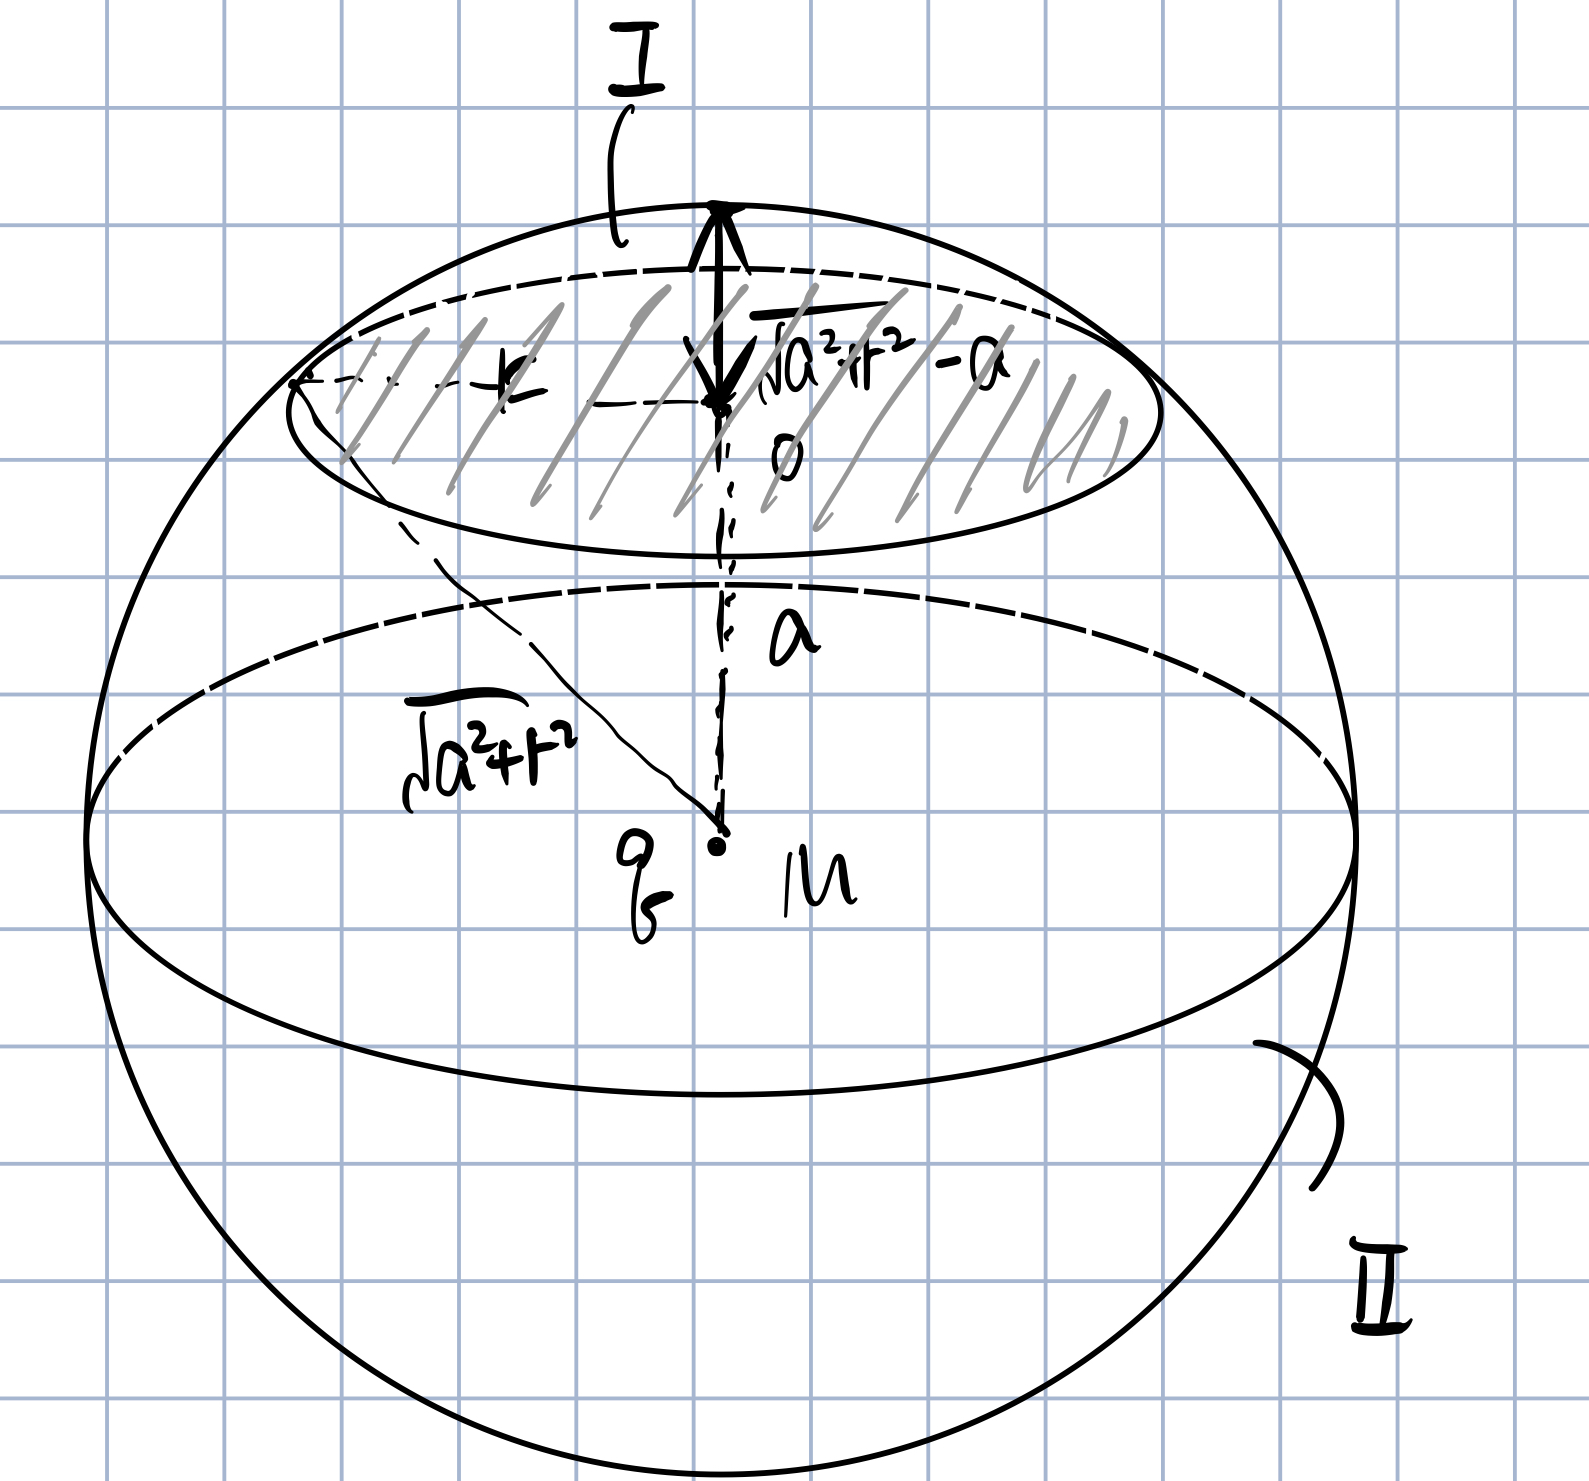 I
r
√a²+r² - a
O
a
√a²+r²
q
M
II